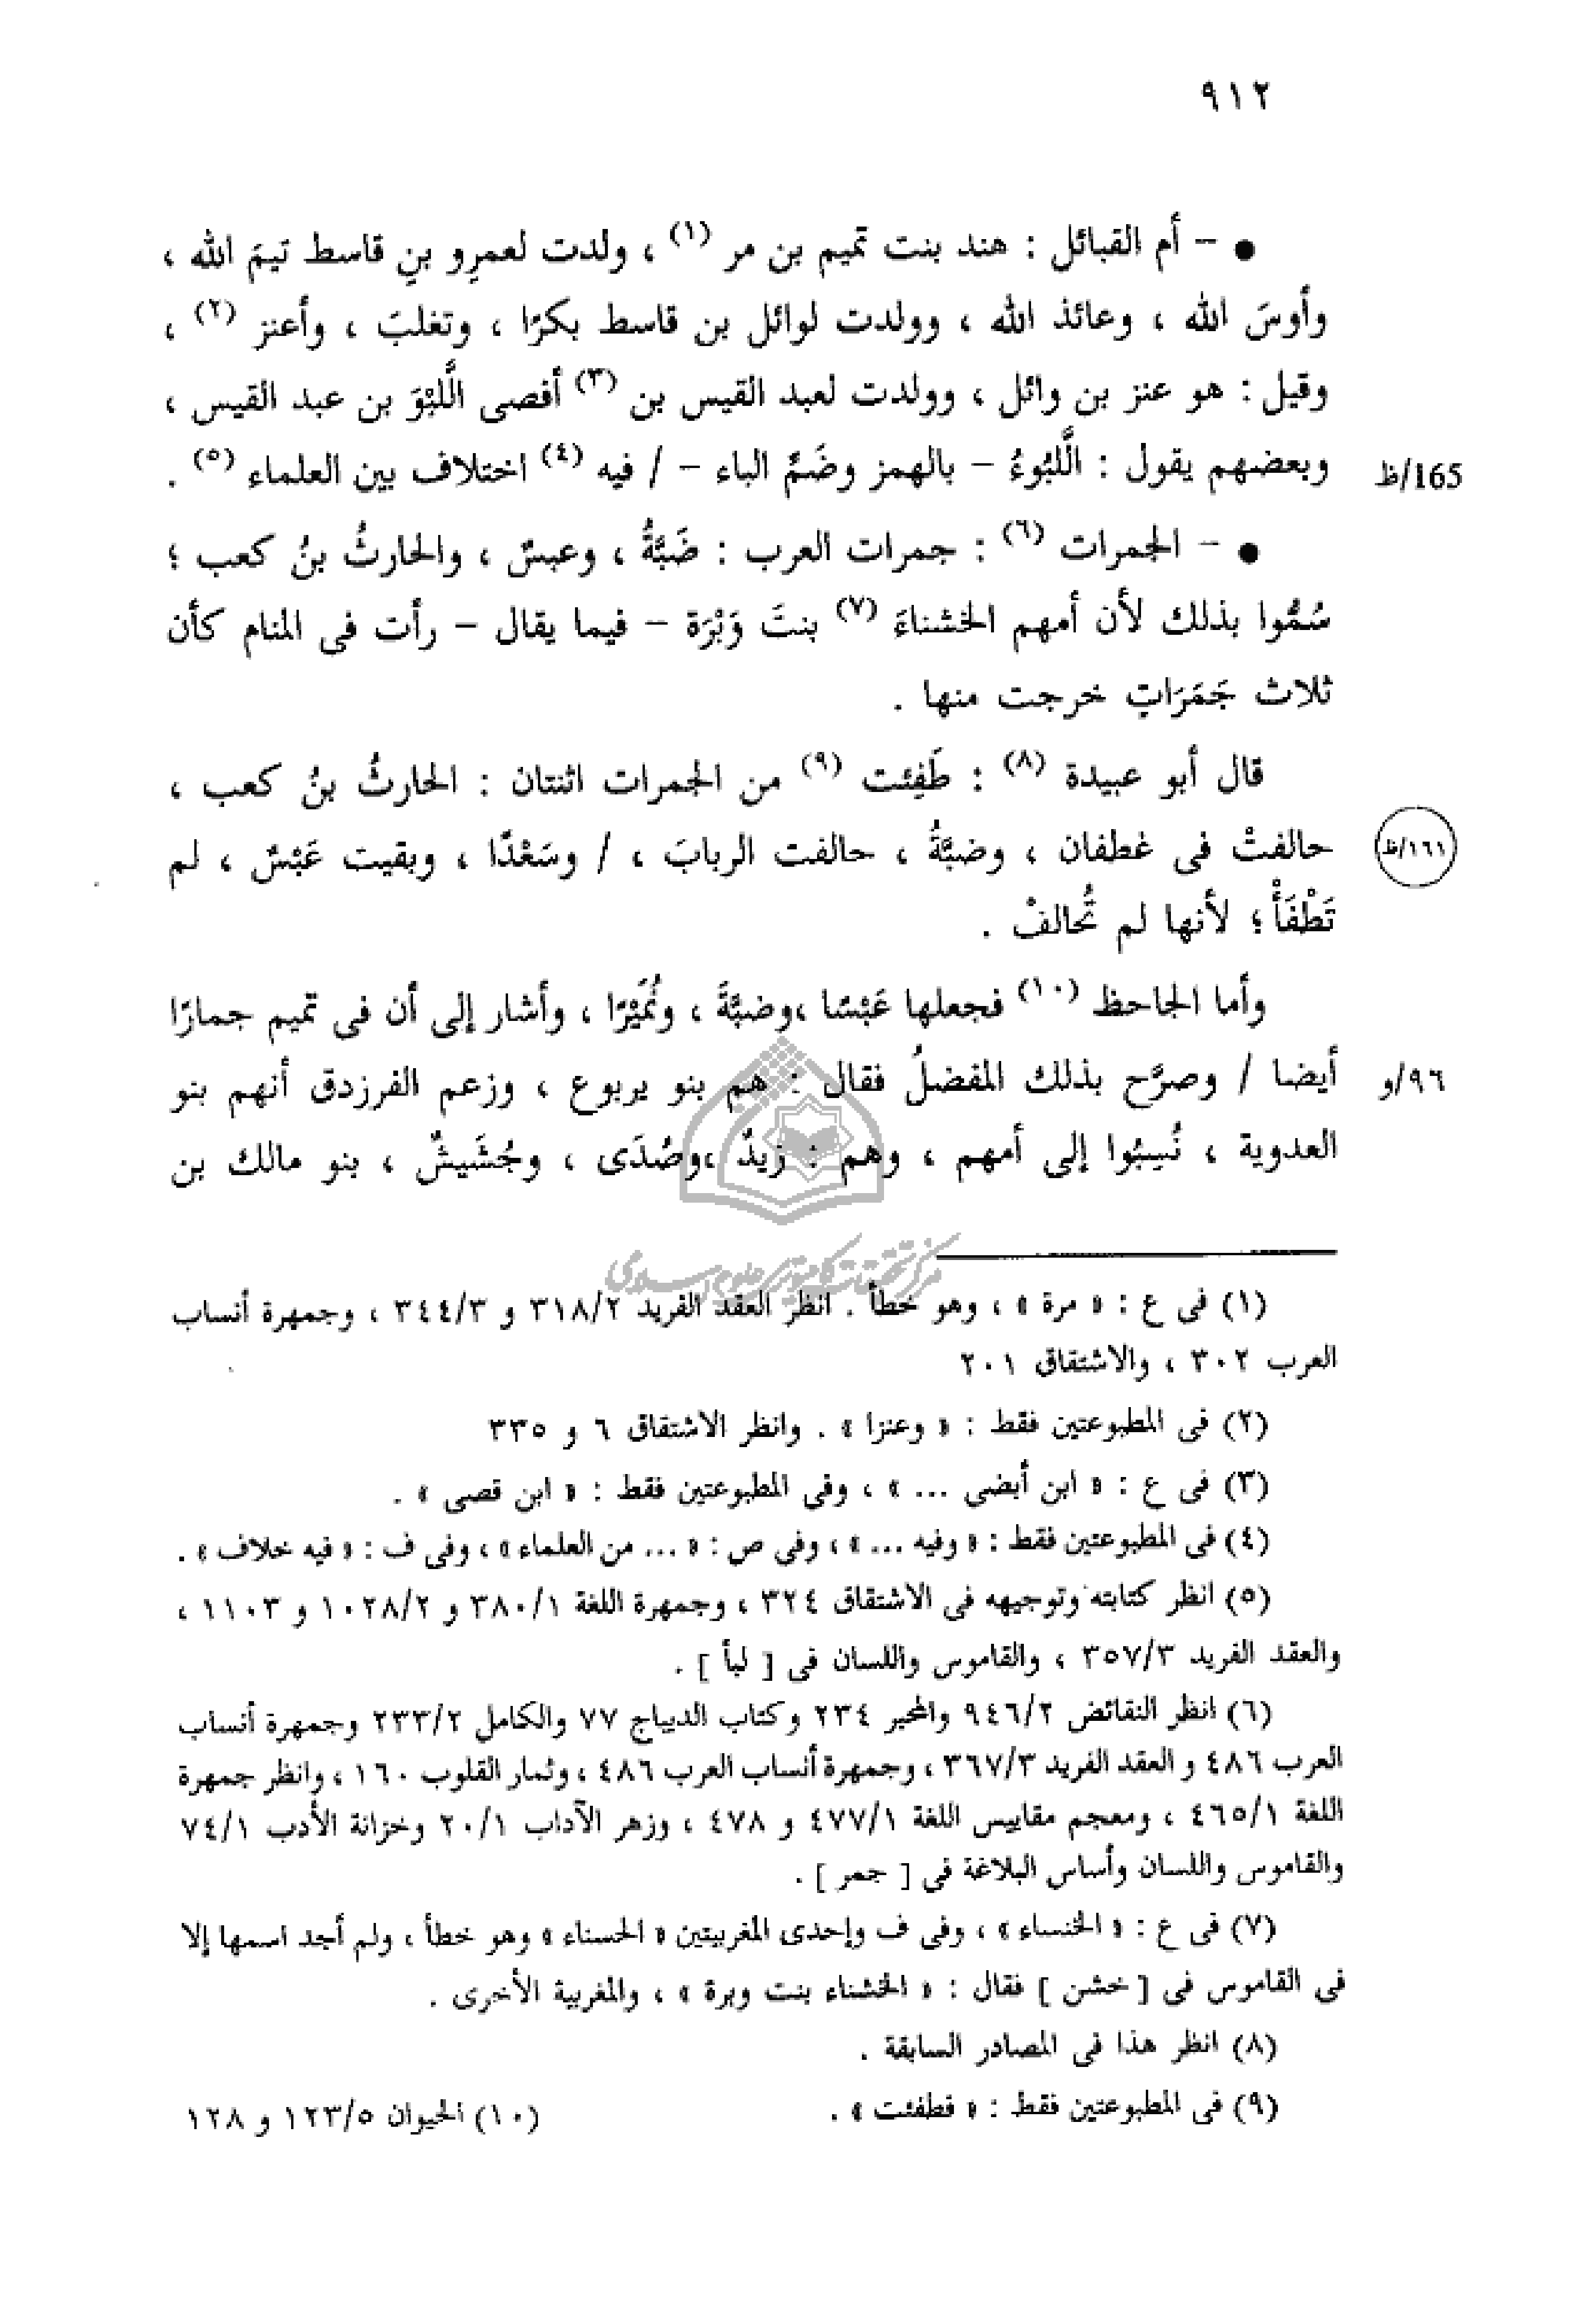 ٩١٢
● – أم القبائل : هند بنت تميم بن مر (١) ، ولدت لعمرِو بنِ قاسط تيمَ الله ،
وأوسَ الله ، وعائذ الله ، وولدت لوائل بن قاسط بكرًا ، وتغلبَ ، وأعنز (٢) ،
وقيل : هو عنز بن وائل ، وولدت لعبد القيس بن (٣) أفصى الَّلبْوَ بن عبد القيس ،
وبعضهم يقول : الَّلبُوءُ – بالهمز وضَمِّ الباء – / فيه (٤) اختلاف بين العلماء (٥) .
165/ظ
● – الجمرات (٦) : جمرات العرب : ضَبَّةُ ، وعبسٌ ، والحارثُ بنُ كعب ؛
سُمُّوا بذلك لأن أمهم الخشناءَ (٧) بنتَ وَبْرَة – فيما يقال – رأت فى المنام كأن
ثلاث جَمَرَاتٍ خرجت منها .
قال أبو عبيدة (٨) : طَفِئت (٩) من الجمرات اثنتان : الحارثُ بنُ كعب ،
حالفتْ فى غطفان ، وضبَّةُ ، حالفت الربابَ ، / وسَعْدًا ، وبقيت عَبْسٌ ، لم
١٦١/ظ
تَطْفَأْ ؛ لأنها لم تُحالفْ .
وأما الجاحظ (١٠) فجعلها عَبْسًا ،وضبَّةَ ، ونُمَيْرًا ، وأشار إلى أن فى تميم جمارًا
أيضا / وصرَّح بذلك المفضلُ فقال : هم بنو يربوع ، وزعم الفرزدق أنهم بنو
٩٦/و
العدوية ، نُسِبُوا إلى أمهم ، وهم : زيدٌ ،وصُدَى ، وجُشَيشٌ ، بنو مالك بن
مركز تحقيقات كامپيوترى علوم اسلامى
(١) فى ع : « مرة » ، وهو خطأ . انظر العقد الفريد ٣١٨/٢ و ٣٤٤/٣ ، وجمهرة أنساب
العرب ٣٠٢ ، والاشتقاق ٢٠١
(٢) فى المطبوعتين فقط : « وعنزا » . وانظر الاشتقاق ٦ و ٣٣٥
(٣) فى ع : « ابن أبضى ... » ، وفى المطبوعتين فقط : « ابن قصى » .
(٤) فى المطبوعتين فقط : « وفيه ... » ، وفى ص : « ... من العلماء » ، وفى ف : « فيه خلاف » .
(٥) انظر كتابته وتوجيهه فى الاشتقاق ٣٢٤ ، وجمهرة اللغة ٣٨٠/١ و ١٠٢٨/٢ و ١١٠٣ ،
والعقد الفريد ٣٥٧/٣ ، والقاموس واللسان فى [ لبأ ] .
(٦) انظر النقائض ٩٤٦/٢ والمحبر ٢٣٤ وكتاب الديباج ٧٧ والكامل ٢٣٣/٢ وجمهرة أنساب
العرب ٤٨٦ و العقد الفريد ٣٦٧/٣ ، وجمهرة أنساب العرب ٤٨٦ ، وثمار القلوب ١٦٠ ، وانظر جمهرة
اللغة ٤٦٥/١ ، ومعجم مقاييس اللغة ٤٧٧/١ و ٤٧٨ ، وزهر الآداب ٢٠/١ وخزانة الأدب ٧٤/١
والقاموس واللسان وأساس البلاغة فى [ جمر ] .
(٧) فى ع : « الخنساء » ، وفى ف وإحدى المغربيتين « الحسناء » وهو خطأ ، ولم أجد اسمها إلا
فى القاموس فى [ خشن ] فقال : « الخشناء بنت وبرة » ، والمغربية الأخرى .
(٨) انظر هذا فى المصادر السابقة .
(٩) فى المطبوعتين فقط : « فطفئت » . (١٠) الحيوان ١٢٣/٥ و ١٢٨